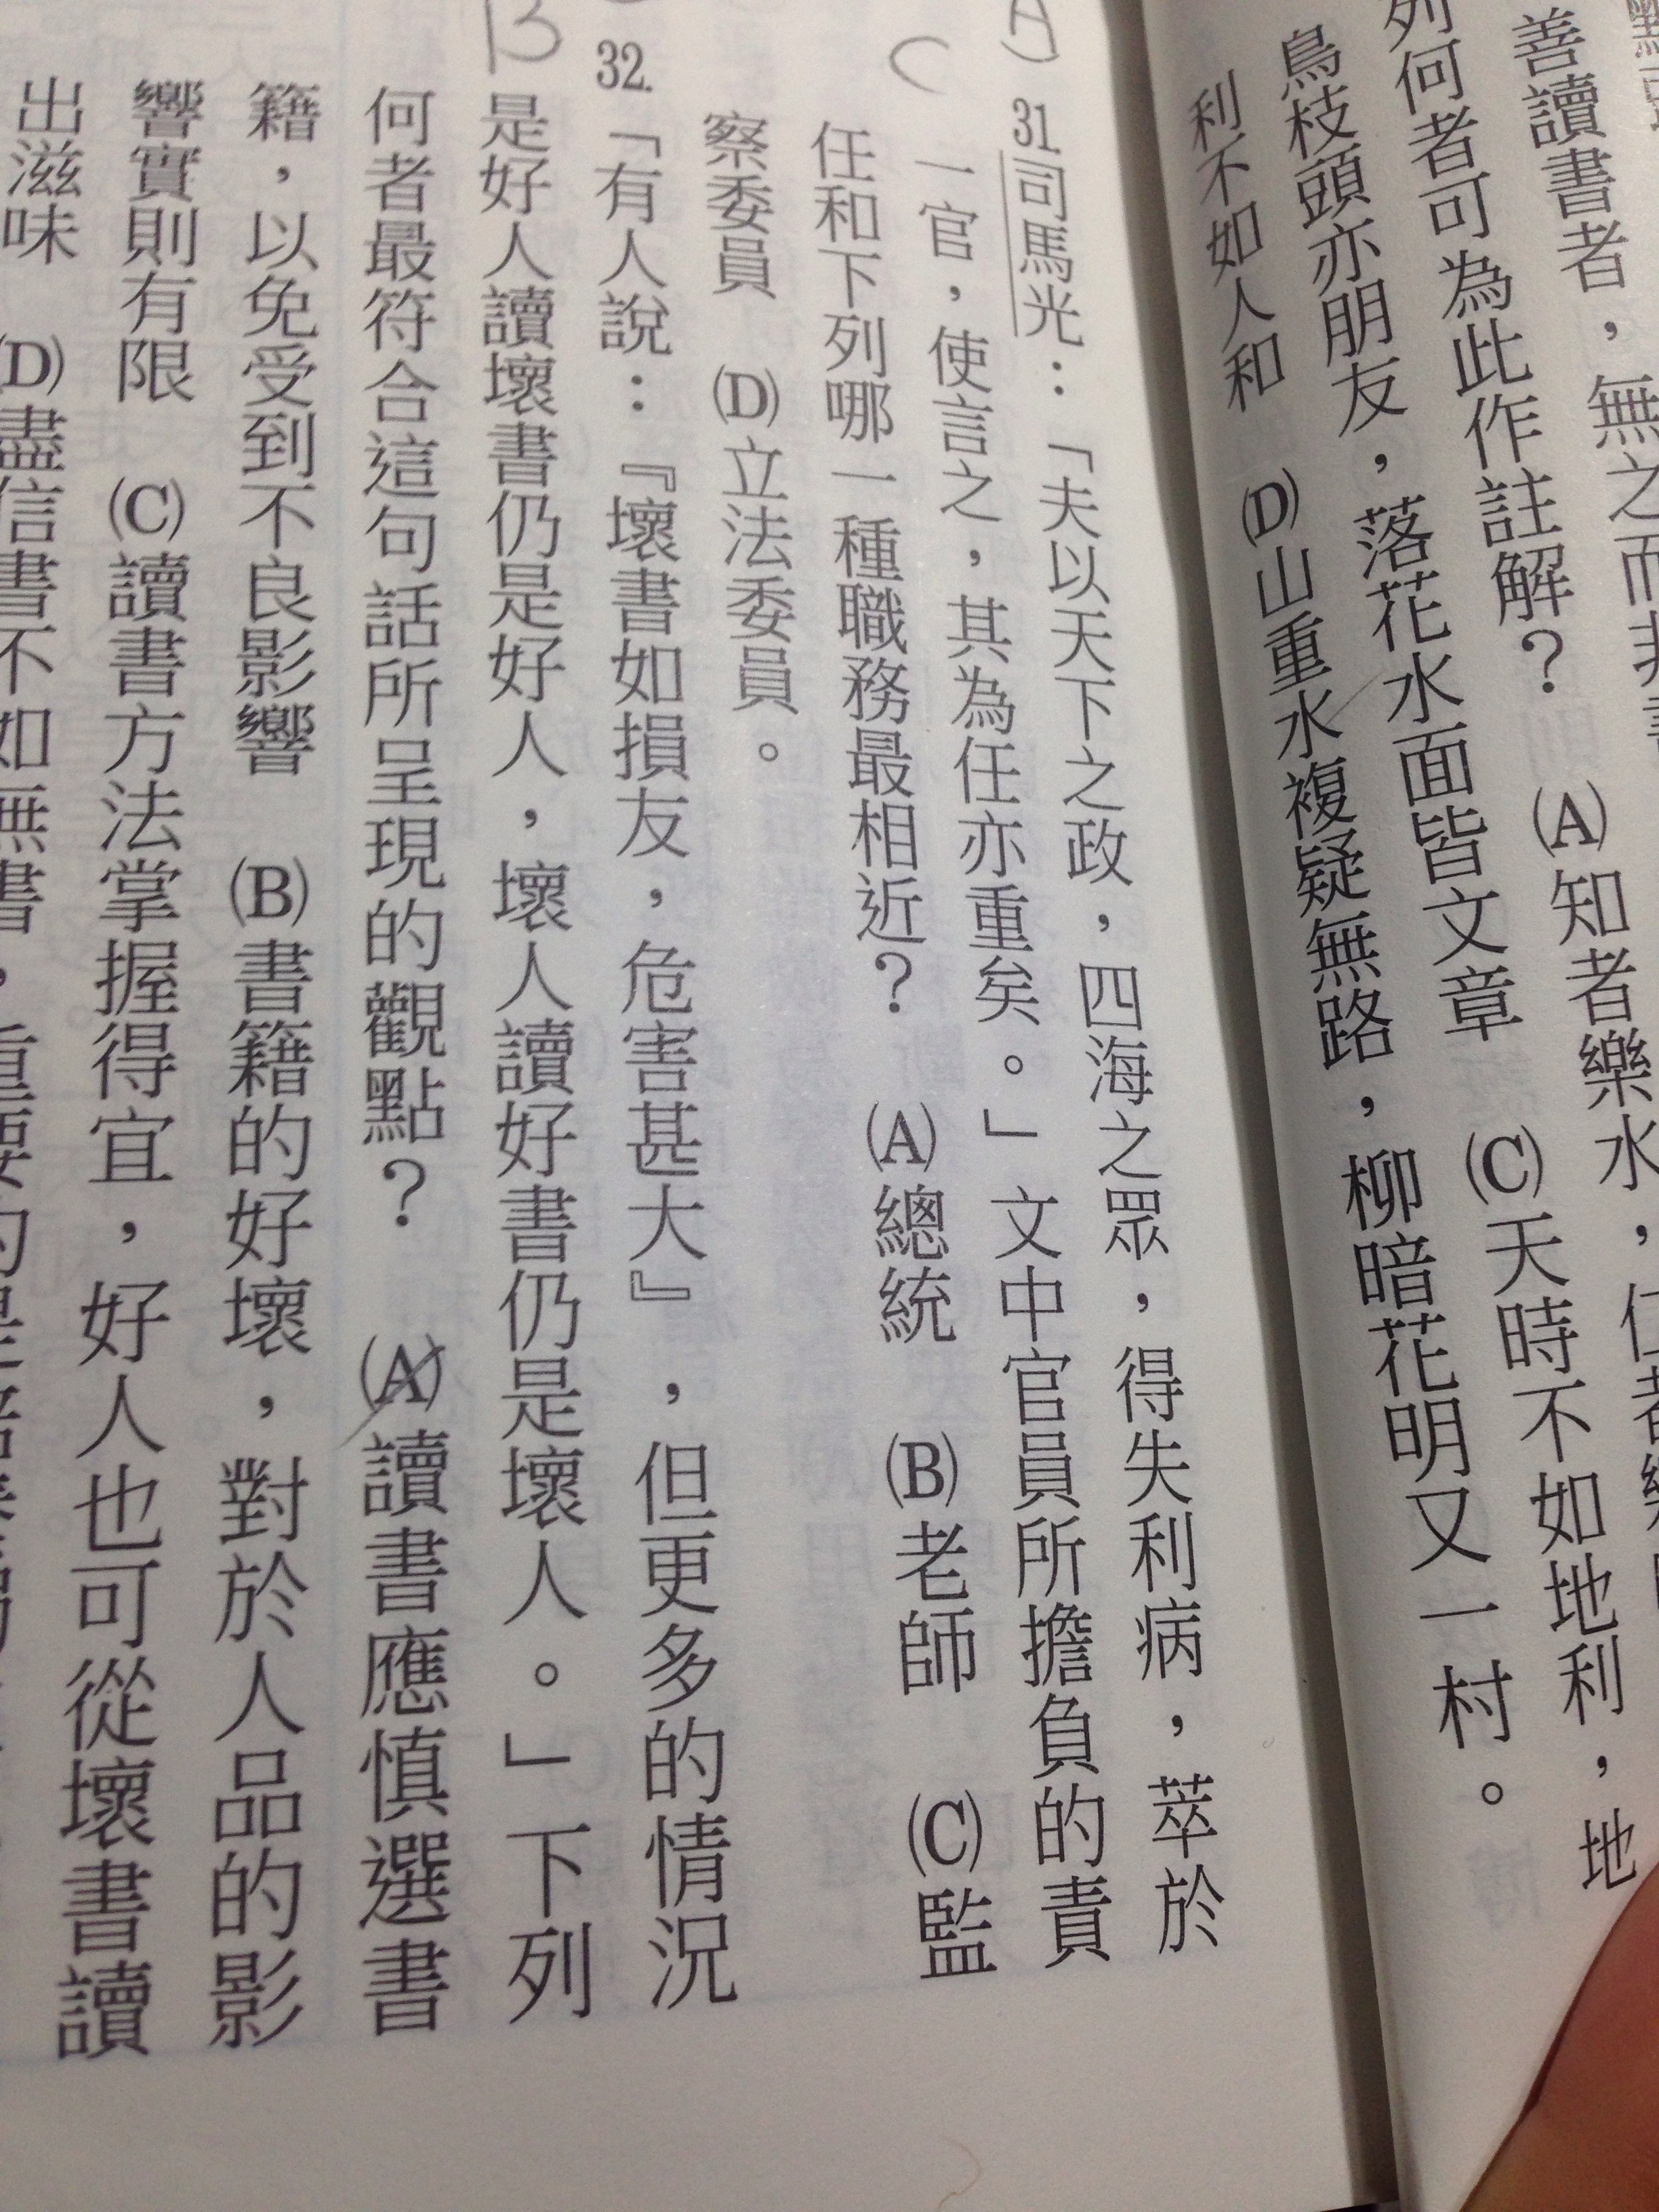 善讀書者，無之而非書
列何者可為此作註解？　(A)知者樂水，仁者樂
鳥枝頭亦朋友，落花水面皆文章　(C)天時不如地利，地
利不如人和　(D)山重水複疑無路，柳暗花明又一村。
31司馬光：「夫以天下之政，四海之眾，得失利病，萃於
一官，使言之，其為任亦重矣。」文中官員所擔負的責
任和下列哪一種職務最相近？　(A)總統　(B)老師　(C)監
察委員　(D)立法委員。
C
32.「有人說：『壞書如損友，危害甚大』，但更多的情況
是好人讀壞書仍是好人，壞人讀好書仍是壞人。」下列
何者最符合這句話所呈現的觀點？　(A)讀書應慎選書
籍，以免受到不良影響　(B)書籍的好壞，對於人品的影
響實則有限　(C)讀書方法掌握得宜，好人也可從壞書讀
出滋味　(D)盡信書不如無書，重要的是
B